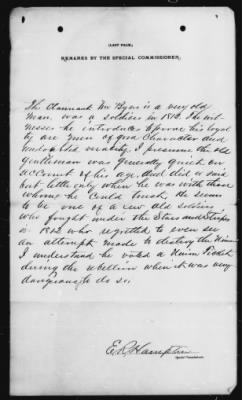 (LAST PAGE.)
REMARKS BY THE SPECIAL COMMISSIONER.
The Claimant Mr Byrn is a very old
man, was a soldier in 1812. The wit-
nesses he introduces to prove his loyal
ty are men of good Character and
undoubted veracity. I presume the old
gentleman was generally quiet on
account of his age and did a said
but little only when he was with those
whom he could trust, he seems
to be one of a few old soldiers
who fought under the Stars and Stripes
in 1812 who regretted to even see
an attempt made to destroy the Union
I understand he voted a Union Ticket
during the rebellion when it was very
dangerous to do so.
E. R. Hampton
Special Commissioner.